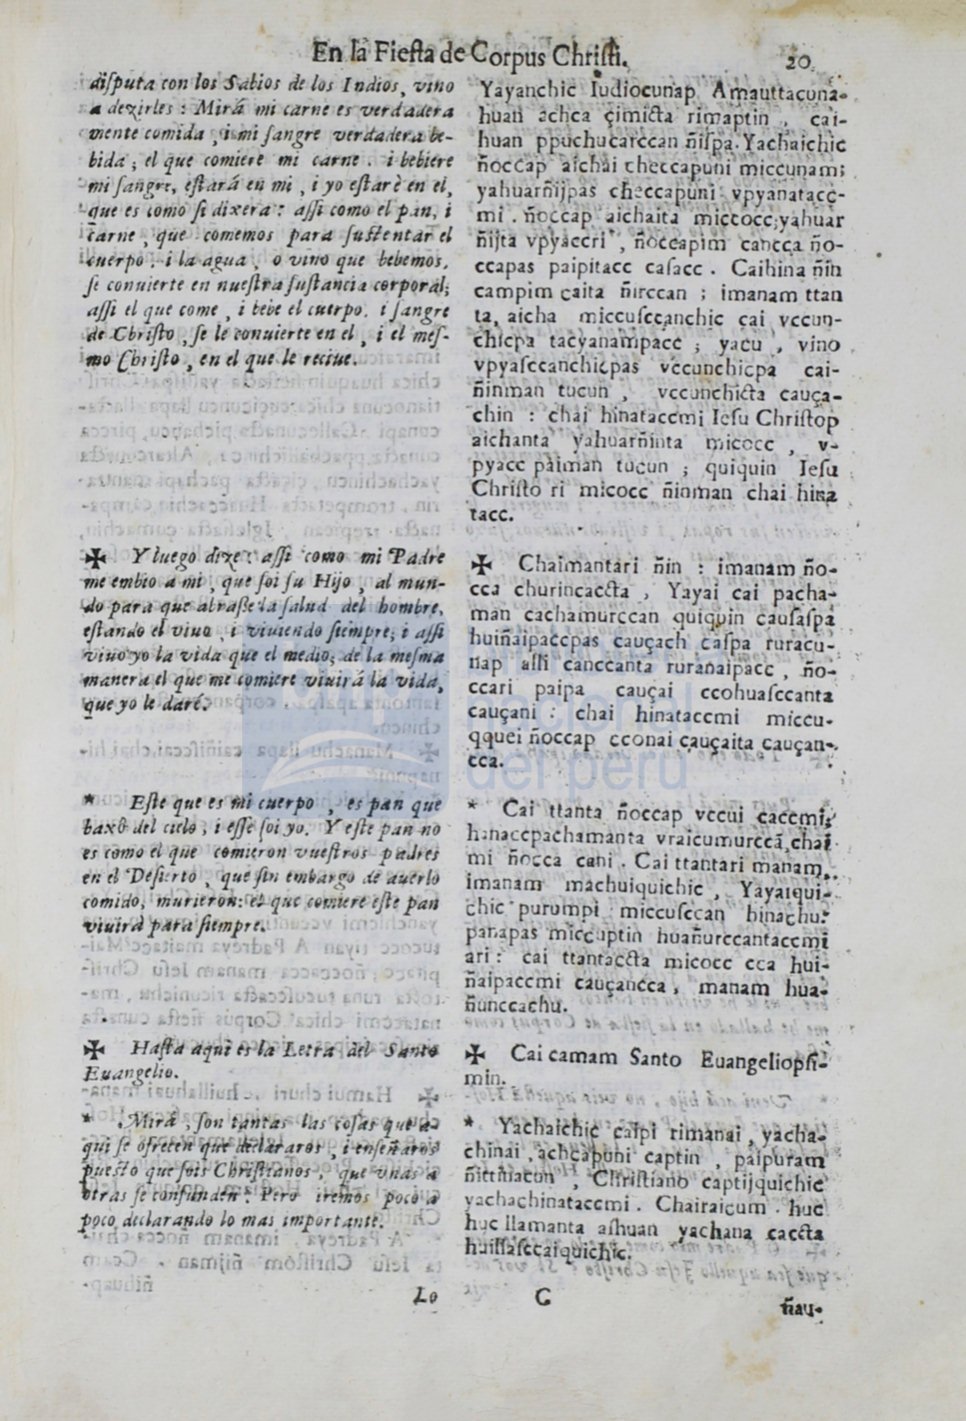 En la Fiesta de Corpus Christi.
20
disputa con los Sabios de los Indios, vino
a dezirles : Mirá mi carne es verdadera
mente comida , i mi sangre verdadera be-
bida ; el que comiere mi carne . i bebiere
mi sangre, estará en mi , i yo estarè en el,
que es como si dixera : assi como el pan, i
carne , que comemos para sustentar el
cuerpo . i la agua , o vino que bebemos,
se conuierte en nuestra sustancia corporal;
assi el que come , i bebe el cuerpo, i sangre
de Christo , se le conuierte en el , i el mes-
mo Christo , en el que le reciue.
✠ Y luego dize : assi como mi Padre
me embio a mi , que soi su Hijo , al mun-
do para que abrasse la salud del hombre,
estando el viuo , i viuiendo siempre; i assi
viuo yo la vida que el medio; de la mesma
manera el que me comiere viuirá la vida,
que yo le daré.
* Este que es mi cuerpo , es pan que
baxó del cielo ; i esse soi yo. Y este pan no
es como el que comieron vuestros padres
en el Desierto , que sin embargo de auerlo
comido, murieron: el que comiere este pan
viuirá para siempre.
✠ Hasta aqui es la Letra del Santo
Euangelio.
* Mirá , son tantas las cosas que a-
qui se ofrecen que declararos , i enseñaros
puesto que sois Christianos , que vnas a
otras se confunden : Pero iremos poco a
poco declarando lo mas importante.
Lo
Yayanchic Iudiocunap Amauttacuna-
huan achca çimicta rimaptin , cai-
huan ppuchucarccan ñispa. Yachaichic
ñoccap aichai checcapuni miccunam;
yahuarñijpas checcapuni vpyanatacc-
mi . ñoccap aichaita miccocc; yahuar
ñijta vpyaccri , ñoccapim cancca ño-
ccapas paipitacc casacc . Caihina ñin
campim caita ñirccan ; imanam ttan
ta, aicha miccusccanchic cai vccun-
chicpa tacyanampacc ; yacu , vino
vpyasccanchicpas vccunchicpa cai-
ñinman tucun , vccunchicta cauça-
chin : chai hinataccmi Iesu Christop
aichanta yahuarñinta micocc , v-
pyacc paiman tucun ; quiquin Iesu
Christo ri micocc ñinman chai hina
tacc.
✠ Chaimantari ñin : imanam ño-
cca churincaccta , Yayai cai pacha-
man cachamurccan quiquin causaspa
huiñaipaccpas cauçach caspa ruracu-
nap assi canccanta ruranaipacc , ño-
ccari paipa cauçai ccohuasccanta
cauçani : chai hinataccmi miccu-
qquei ñoccap cconai cauçaita cauçan-
cca.
* Cai ttanta ñoccap vccui caccmi,
hanaccpachamanta vraicumurccã, chai
mi ñocca cani . Cai ttantari manam
imanam machuiquichic , Yayaiqui-
chic purumpi miccusccan hinachu:
panapas miccuptin huañurccantaccmi
ari : cai ttantaccta micocc cca hui-
ñaipaccmi cauçancca , manam hua-
ñunccachu.
✠ Cai camam Santo Euangeliopsi-
min.
* Yachaichic caipi rimanai , yacha-
chinai , achcapuni captin , paipuram
, Christiano captijquichic
yachachinataccmi . Chairaicum huc
huc llamanta ashuan yachana caccta
huillasccaiquichic.
C
ñau-